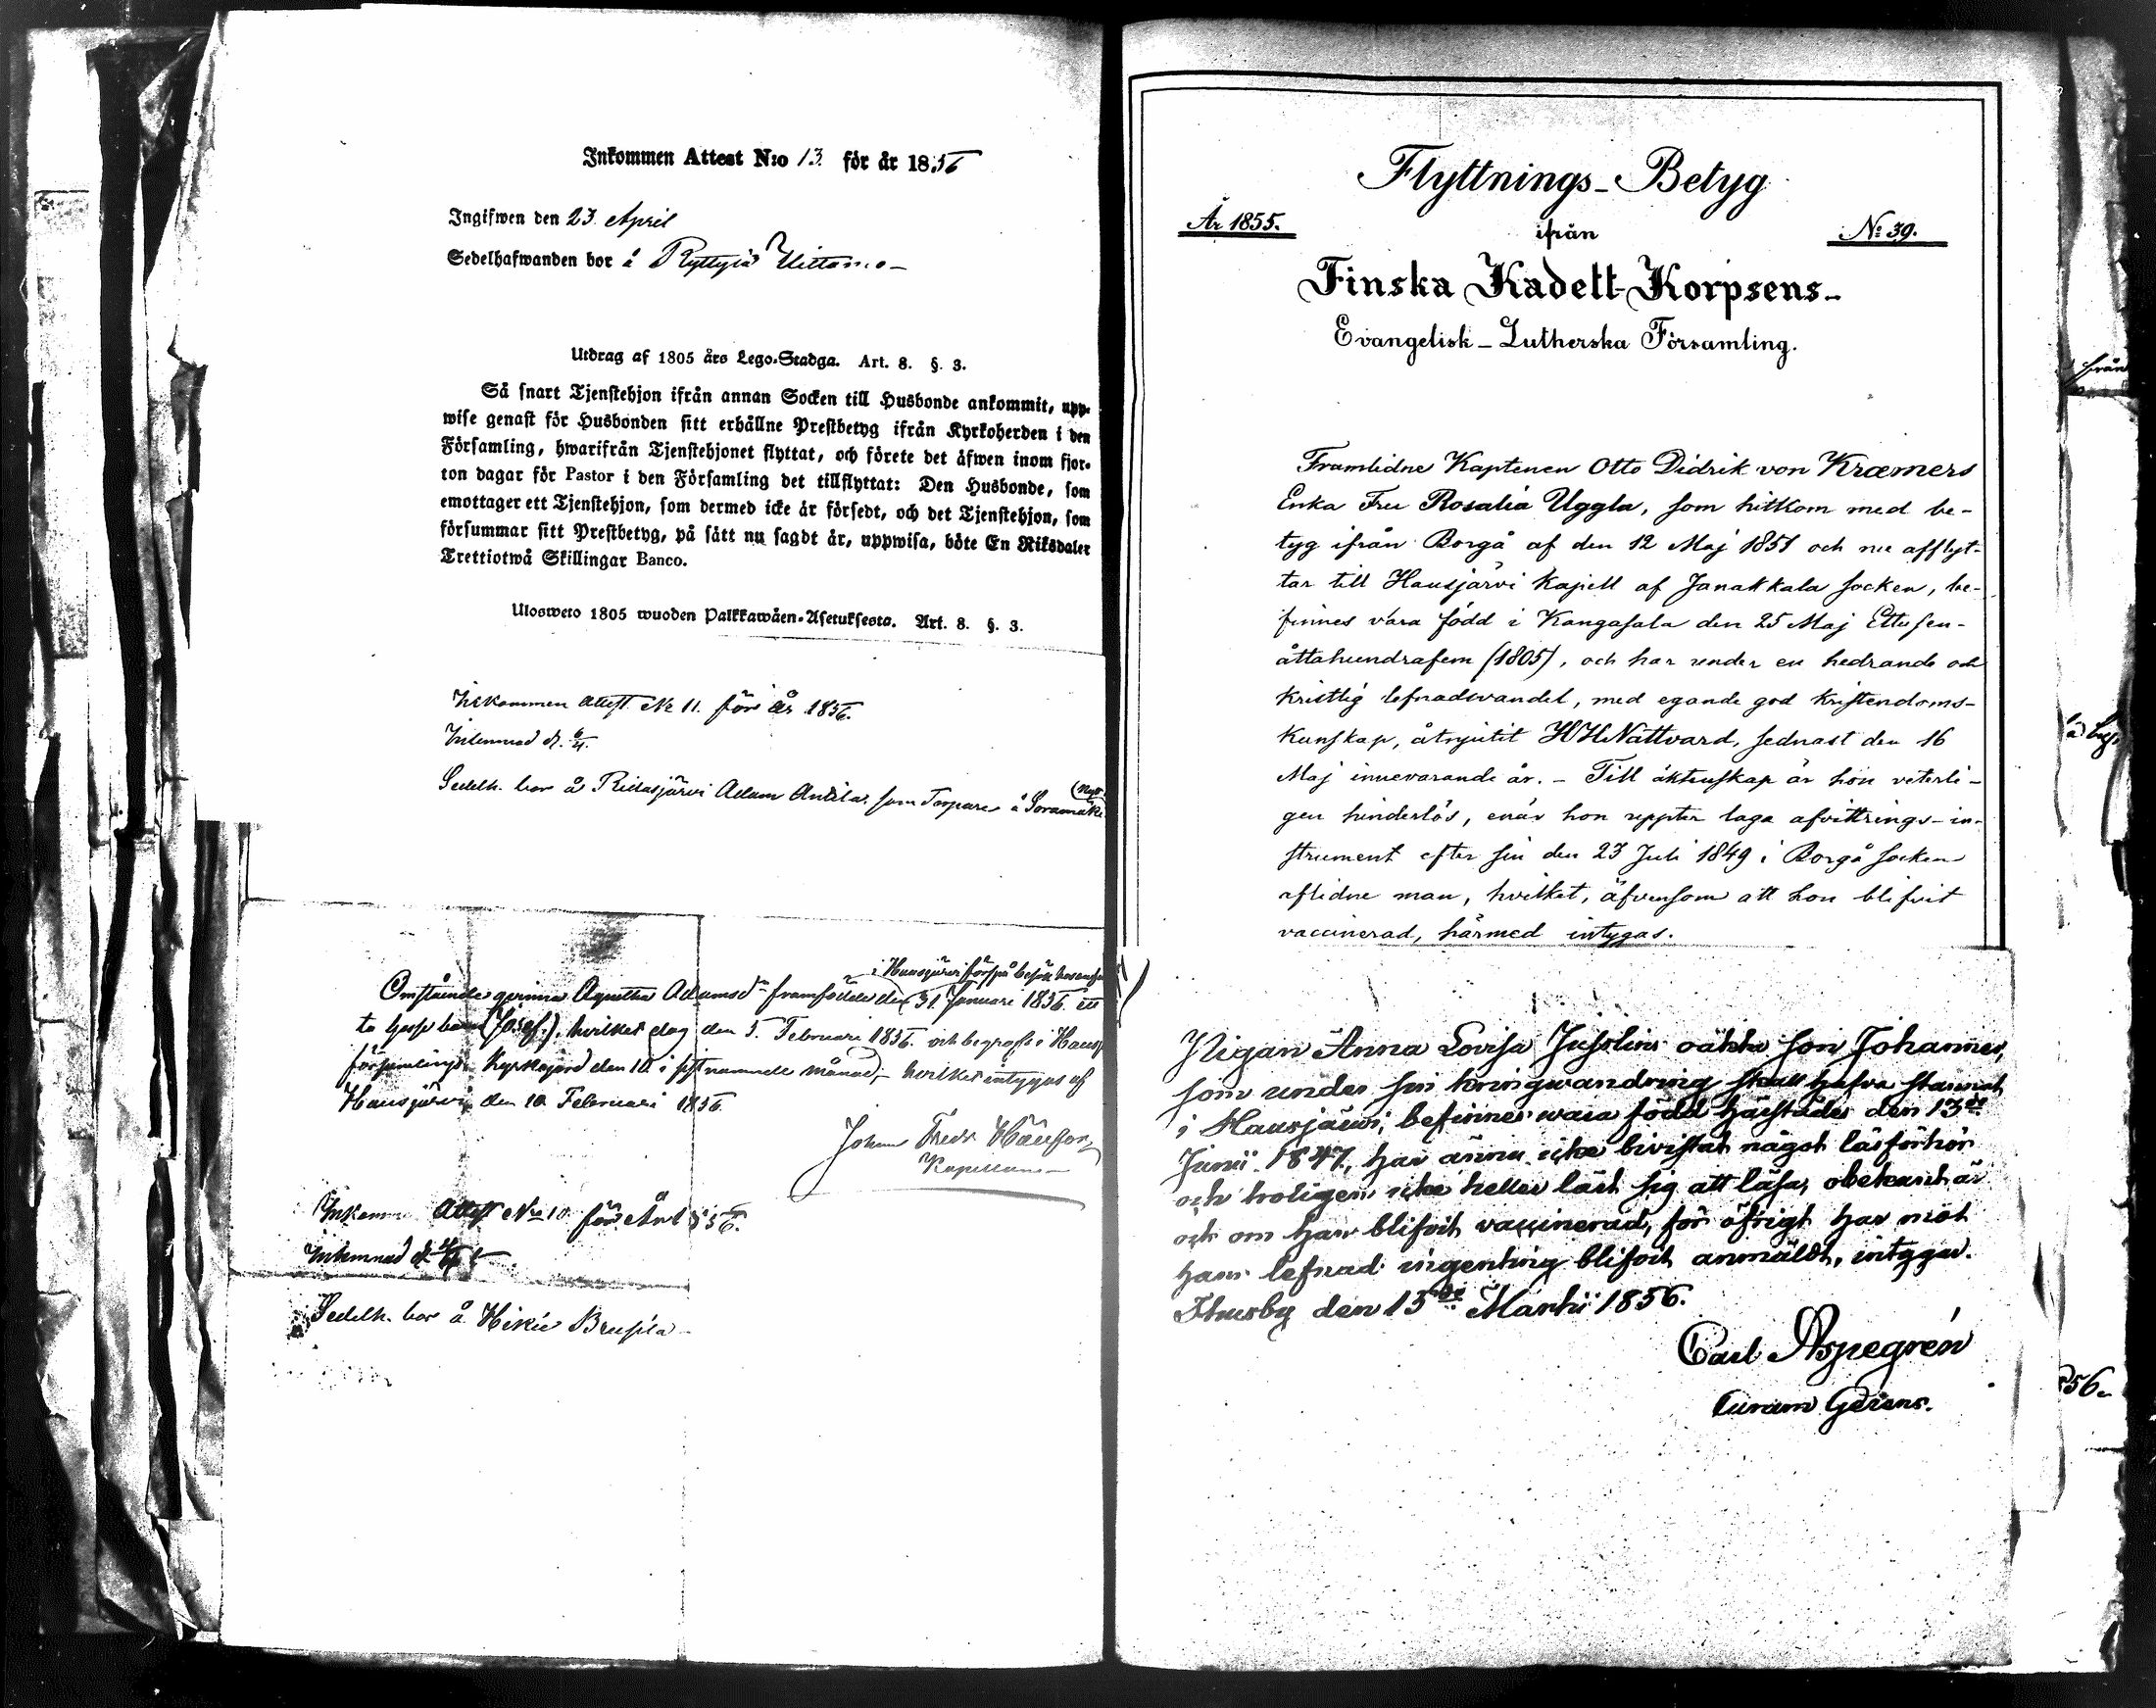 Inkommen Attest N:o 13 för år 1856
Ingifwen den 23 April
Sedelhafwanden bor å Ryttylä
Utdrag af 1805 års Lego-Stadga. Art. 8. §. 3.
Så snart Tjenstehjon ifrån annan Socken till Husbonde ankommit, upp-
wise genast för Husbonden sitt erhållne Prestbetyg ifrån Kyrkoherden i den
Församling, hwarifrån Tjenstehjonet flyttat, och förete det äfwen inom fjor-
ton dagar för Pastor i den Församling det tillflyttat: Den Husbonde, som
emottager ett Tjenstehjon, som dermed icke är försedt, och det Tjenstehjon, som
försummar sitt Prestbetyg, på sätt nu sagdt är, uppwisa, böte En Riksdaler
Trettiotwå Skillingar Banco.
Ulosweto 1805 wuoden Palkkawäen-Asetuksesta. Art. 8. §. 3.
Inkommen Attest No 11. för år 1856.
Inlemnad d. 6/4.
Sedelh. bor å Ridasjärvi Adam Anttila som Torpare å
i Hausjärvi
Omstående qvinna Agatha Adamsdr framfödde den 31 Januari 1856 ett
hvilket dag den 5. Februari 1856 och begrofs i Hausj
församlings Kyrkogård den 10 i sistnämnde månad, hvilket intygas af
Hausjärvi den 10 Februari 1856.
Johan Fredr
Kapellan
Inkommen Attest No 10 för år 1856.
Inlemnad d.
Sedelh. bor å Hikiä
Flyttnings-Betyg
År 1855.
ifrån
No 39.
Finska Kadett-Korpsens-
Evangelisk-Lutherska Församling.
Framlidne Kaptenen Otto Didrik von Kræmers
Enka Fru Rosalia Uggla, som hitkom med be-
tyg ifrån Borgå af den 12 Maj 1851 och nu afflyt-
tar till Hausjärvi Kapell af Janakkala socken, be-
finnes vara född i Kangasala den 25 Maj Ettusen-
åttahundrafem (1805), och har under en hedrande och
Kristlig lefnadsvandel, med egande god Kristendoms-
Kunskap, åtnjutit HHNattvard, sednast den 16
Maj innevarande år. - Till äktenskap är hon veterli-
gen hinderlös, enär hon uppter laga afvittrings-in-
strument efter sin den 23 Juli 1849 i Borgå socken
aflidne man, hvilket, äfvensom att hon blifvit
vaccinerad, härmed intygas.
Pigan Anna Lovisa Jusslins oäkta son Johannes,
som under sin kringvandring skall hafva stannat
i Hausjärvi, befinnes wara född härstädes den 13de
Junii 1847, har ännu icke bivistat något läsförhör
och troligen icke heller lärt sig att läsa, obekant är
ock om han blifvit vaccinerad, för öfrigt har mot
hans lefnad ingenting blifvit anmäldt, intygar.
Thusby den 15de Martii 1856.
Carl Aspegrén
Curam Gerens.
från
856.